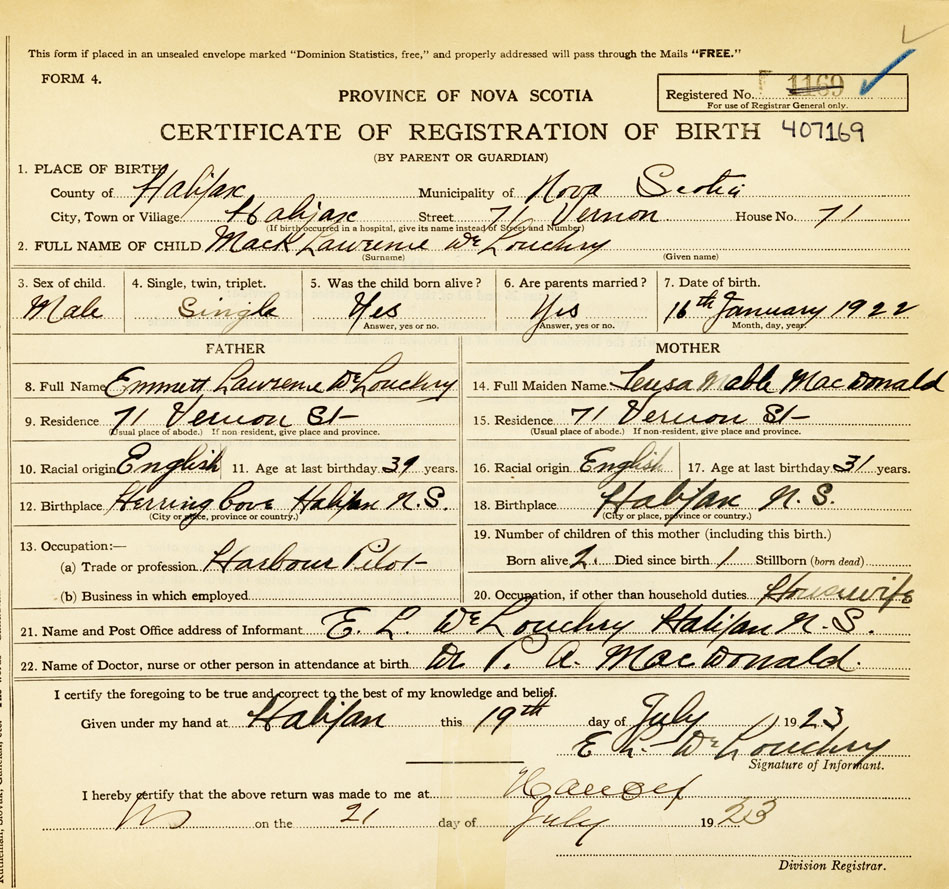 This form if placed in an unsealed envelope marked “Dominion Statistics, free,” and properly addressed will pass through the Mails “FREE.”
FORM 4.
Registered No. 1169
For use of Registrar General only.
PROVINCE OF NOVA SCOTIA
CERTIFICATE OF REGISTRATION OF BIRTH 407169
(BY PARENT OR GUARDIAN)
1. PLACE OF BIRTH
County of Halifax Municipality of Nova Scotia
City, Town or Village Halifax Street 71 Vernon House No. 71
(If birth occurred in a hospital, give its name instead of Street and Number)
2. FULL NAME OF CHILD Mack Lawrence De Louchry
(Surname) (Given name)
3. Sex of child. 4. Single, twin, triplet. 5. Was the child born alive? 6. Are parents married? 7. Date of birth.
Male Single Yes Yes 16th January 1922
Answer, yes or no. Answer, yes or no. Month, day, year.
FATHER MOTHER
8. Full Name Emmett Lawrence De Louchry 14. Full Maiden Name Mable MacDonald
9. Residence 71 Vernon St 15. Residence 71 Vernon St
(Usual place of abode.) If non-resident, give place and province. (Usual place of abode.) If non-resident, give place and province.
10. Racial origin English 11. Age at last birthday 39 years. 16. Racial origin English 17. Age at last birthday 31 years.
12. Birthplace Herring Cove Halifax N.S. 18. Birthplace Halifax N.S.
(City or place, province or country.) (City or place, province or country.)
19. Number of children of this mother (including this birth.)
13. Occupation:—
(a) Trade or profession Harbour Pilot Born alive 2 Died since birth 1 Stillborn (born dead)
(b) Business in which employed 20. Occupation, if other than household duties Housewife
21. Name and Post Office address of Informant E. L. De Louchry Halifax N.S.
22. Name of Doctor, nurse or other person in attendance at birth Dr P. A. MacDonald.
I certify the foregoing to be true and correct to the best of my knowledge and belief.
Given under my hand at Halifax this 19th day of July 1923
E L De Louchry
Signature of Informant.
I hereby certify that the above return was made to me at
on the 21 day of July 1923
Division Registrar.